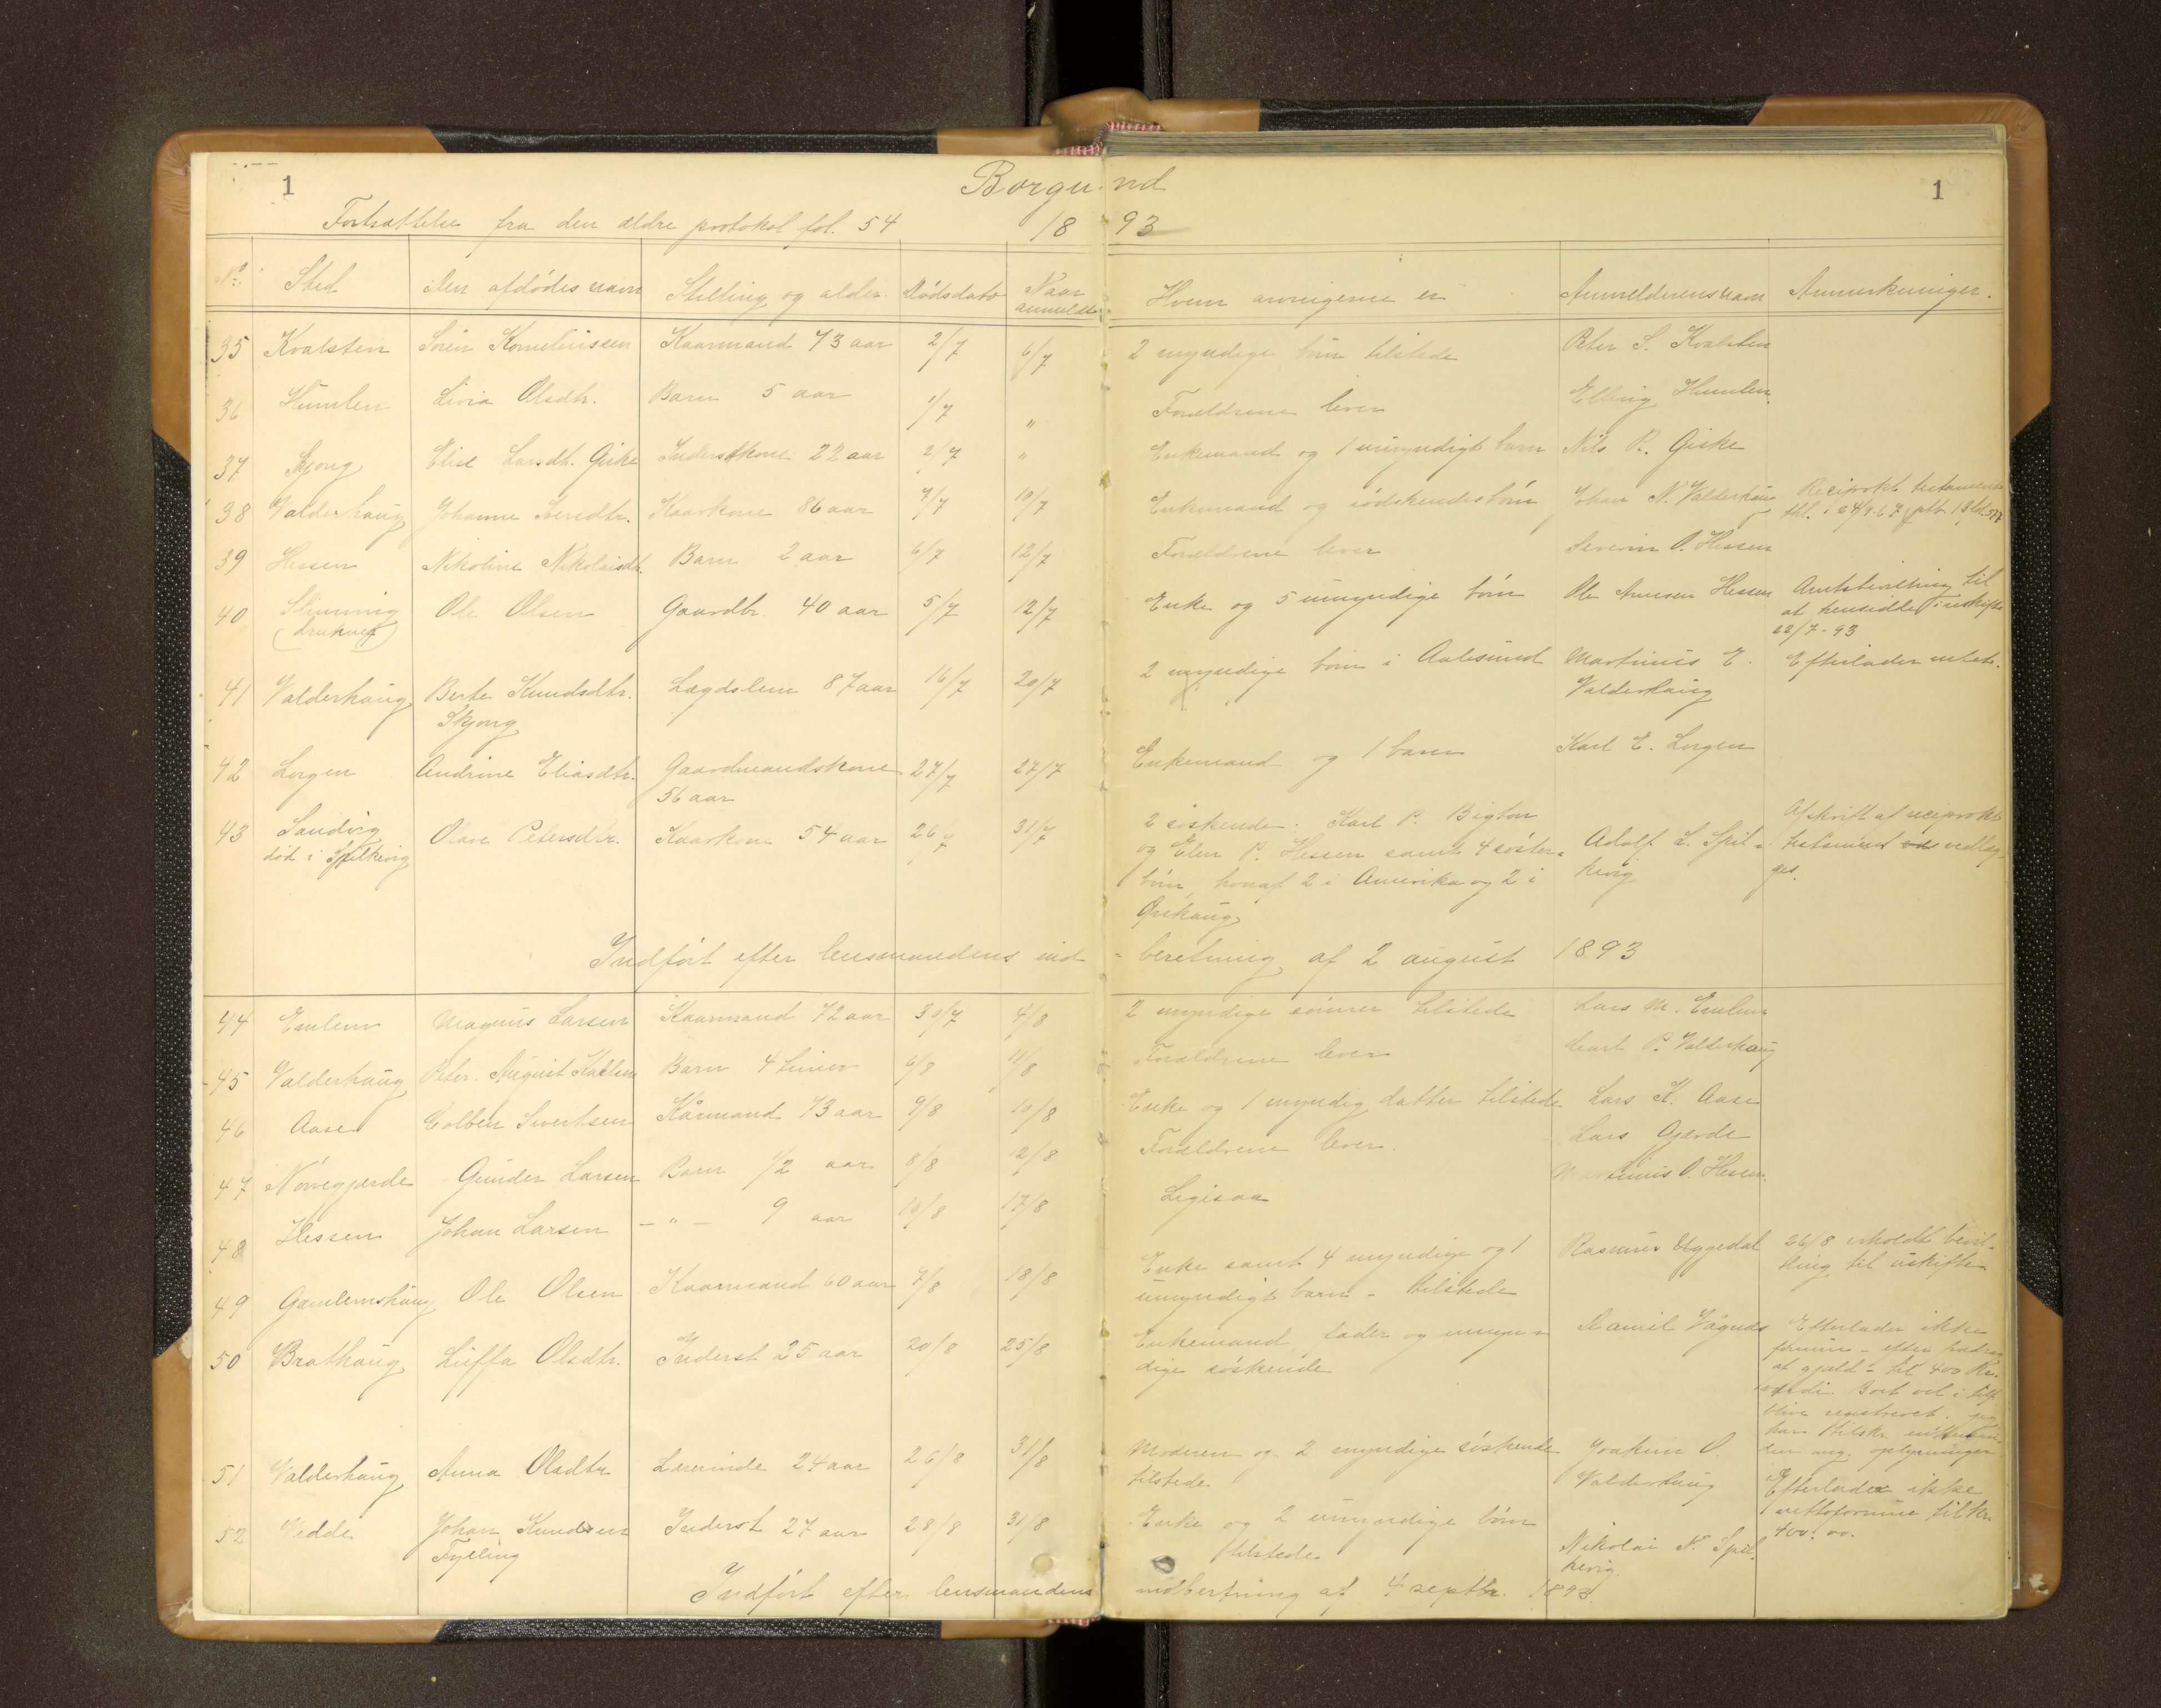 1 Borgund 1
Fortsættelse fra den ældre protokol fol. 54 1893
No. Sted Den afdødes navn Stilling og alder Dødsdato Naar anmeldt Hvem arvingerne er Anmelderens navn Anmerkninger.
35 Kvalsten Sören Korneliussen Kaarmand 73 aar 2/7 6/7 2 myndige börn tilstede Peter S. Kvalsten
36 Humlen Livia Olsdtr. Barn 5 aar 1/7 " Forældrene lever Elling Humlen
37 Skjong Elise Larsdtr. Giske Inderstkone 22 aar 2/7 " Enkemand og 1 umyndigt barn Nils R. Giske
38 Valderhaug Johanne Iversdtr. Kaarkone 86 aar 7/7 10/7 Enkemand og södskendebörn Johan N. Valderhaug Reciprokt testamente
thl. 24/9.67
39 Hessen Nikoline Nikolaisdtr. Barn 2 aar 6/7 12/7 Forældrene lever Severin O. Hessen
40 Slinning Ole Olsen Gaardbr. 40 aar 5/7 12/7 Enke og 5 umyndige börn Ole Arnesen Hessen Amtsbevilling til
(druknet) at hensidde i uskifte
22/7-93
41 Valderhaug Berte Knudsdtr. Lægdslem 87 aar 16/7 20/7 2 myndige börn i Aalesund Martinus E. Efterlader intet.
Skjong Valderhaug
42 Lorgen Andrine Eliasdtr. Gaardmandskone 27/7 27/7 Enkemand og 1 barn Karl E. Lorgen
56 aar
43 Sandvig Olave Petersdtr. Kaarkone 54 aar 26/7 31/7 2 söskende: Karl P. Bigton Adolf L. Spil- Afskrift af reciprokt
död i Spilkevig og Elen P. Hessen samt 4 söster- kevig testament vedlæg-
börn, hvoraf 2 i Amerika og 2 i ges.
Indfört efter lensmandens ind- beretning af 2 august 1893
44 Emlem Magnus Larsen Kaarmand 72 aar 30/7 4/8 2 myndige sönner tilstede Lars M. Emlem
45 Valderhaug Peter August Barn 4 timer 6/8 11/8 Forældrene lever P. Valderhaug
46 Aase Kolben Sivertsen Kårmand 73 aar 9/8 10/8 Enke og 1 myndig datter tilstede Lars K. Aase
47 Nörvegjerde Gunder Larsen Barn 1/2 aar 8/8 12/8 Forældrene lever. Lars Gjerde
48 Hessen Johan Larsen — " — 9 aar 10/8 17/8 Ligesaa Martinus O. Hessen.
49 Gamlemshaug Ole Olsen Kaarmand 60 aar 7/8 18/8 Enke samt 4 myndige og 1 Rasmus Uggedal 26/8 erholdt bevil-
umyndigt barn - tilstede ling til uskifte
50 Brathaug Luffa Olsdtr. Inderst 25 aar 20/8 25/8 Enkemand, fader og umyn- Daniel Vågnes Efterlader ikke
dige söskende formue - efter fradrag
af gjæld - til 400 Kr.
værdi. Boet vil i tilf.
blive registreret.
51 Valderhaug Anna Olsdtr. Lærerinde 24 aar 26/8 31/8 Moderen og 2 myndige söskende Joakim O. oplysninger
tilstede Valderhaug
52 Vedde Johan Knudsen Inderst 27 aar 28/8 31/8 Enke og 2 umyndige börn Nikolai N. Spil- Efterlader ikke
Fylling tilstede kevig. nettoformue til Kr.
400.00.
Indfört efter lensmandens indberetning af 4 septbr. 1893.